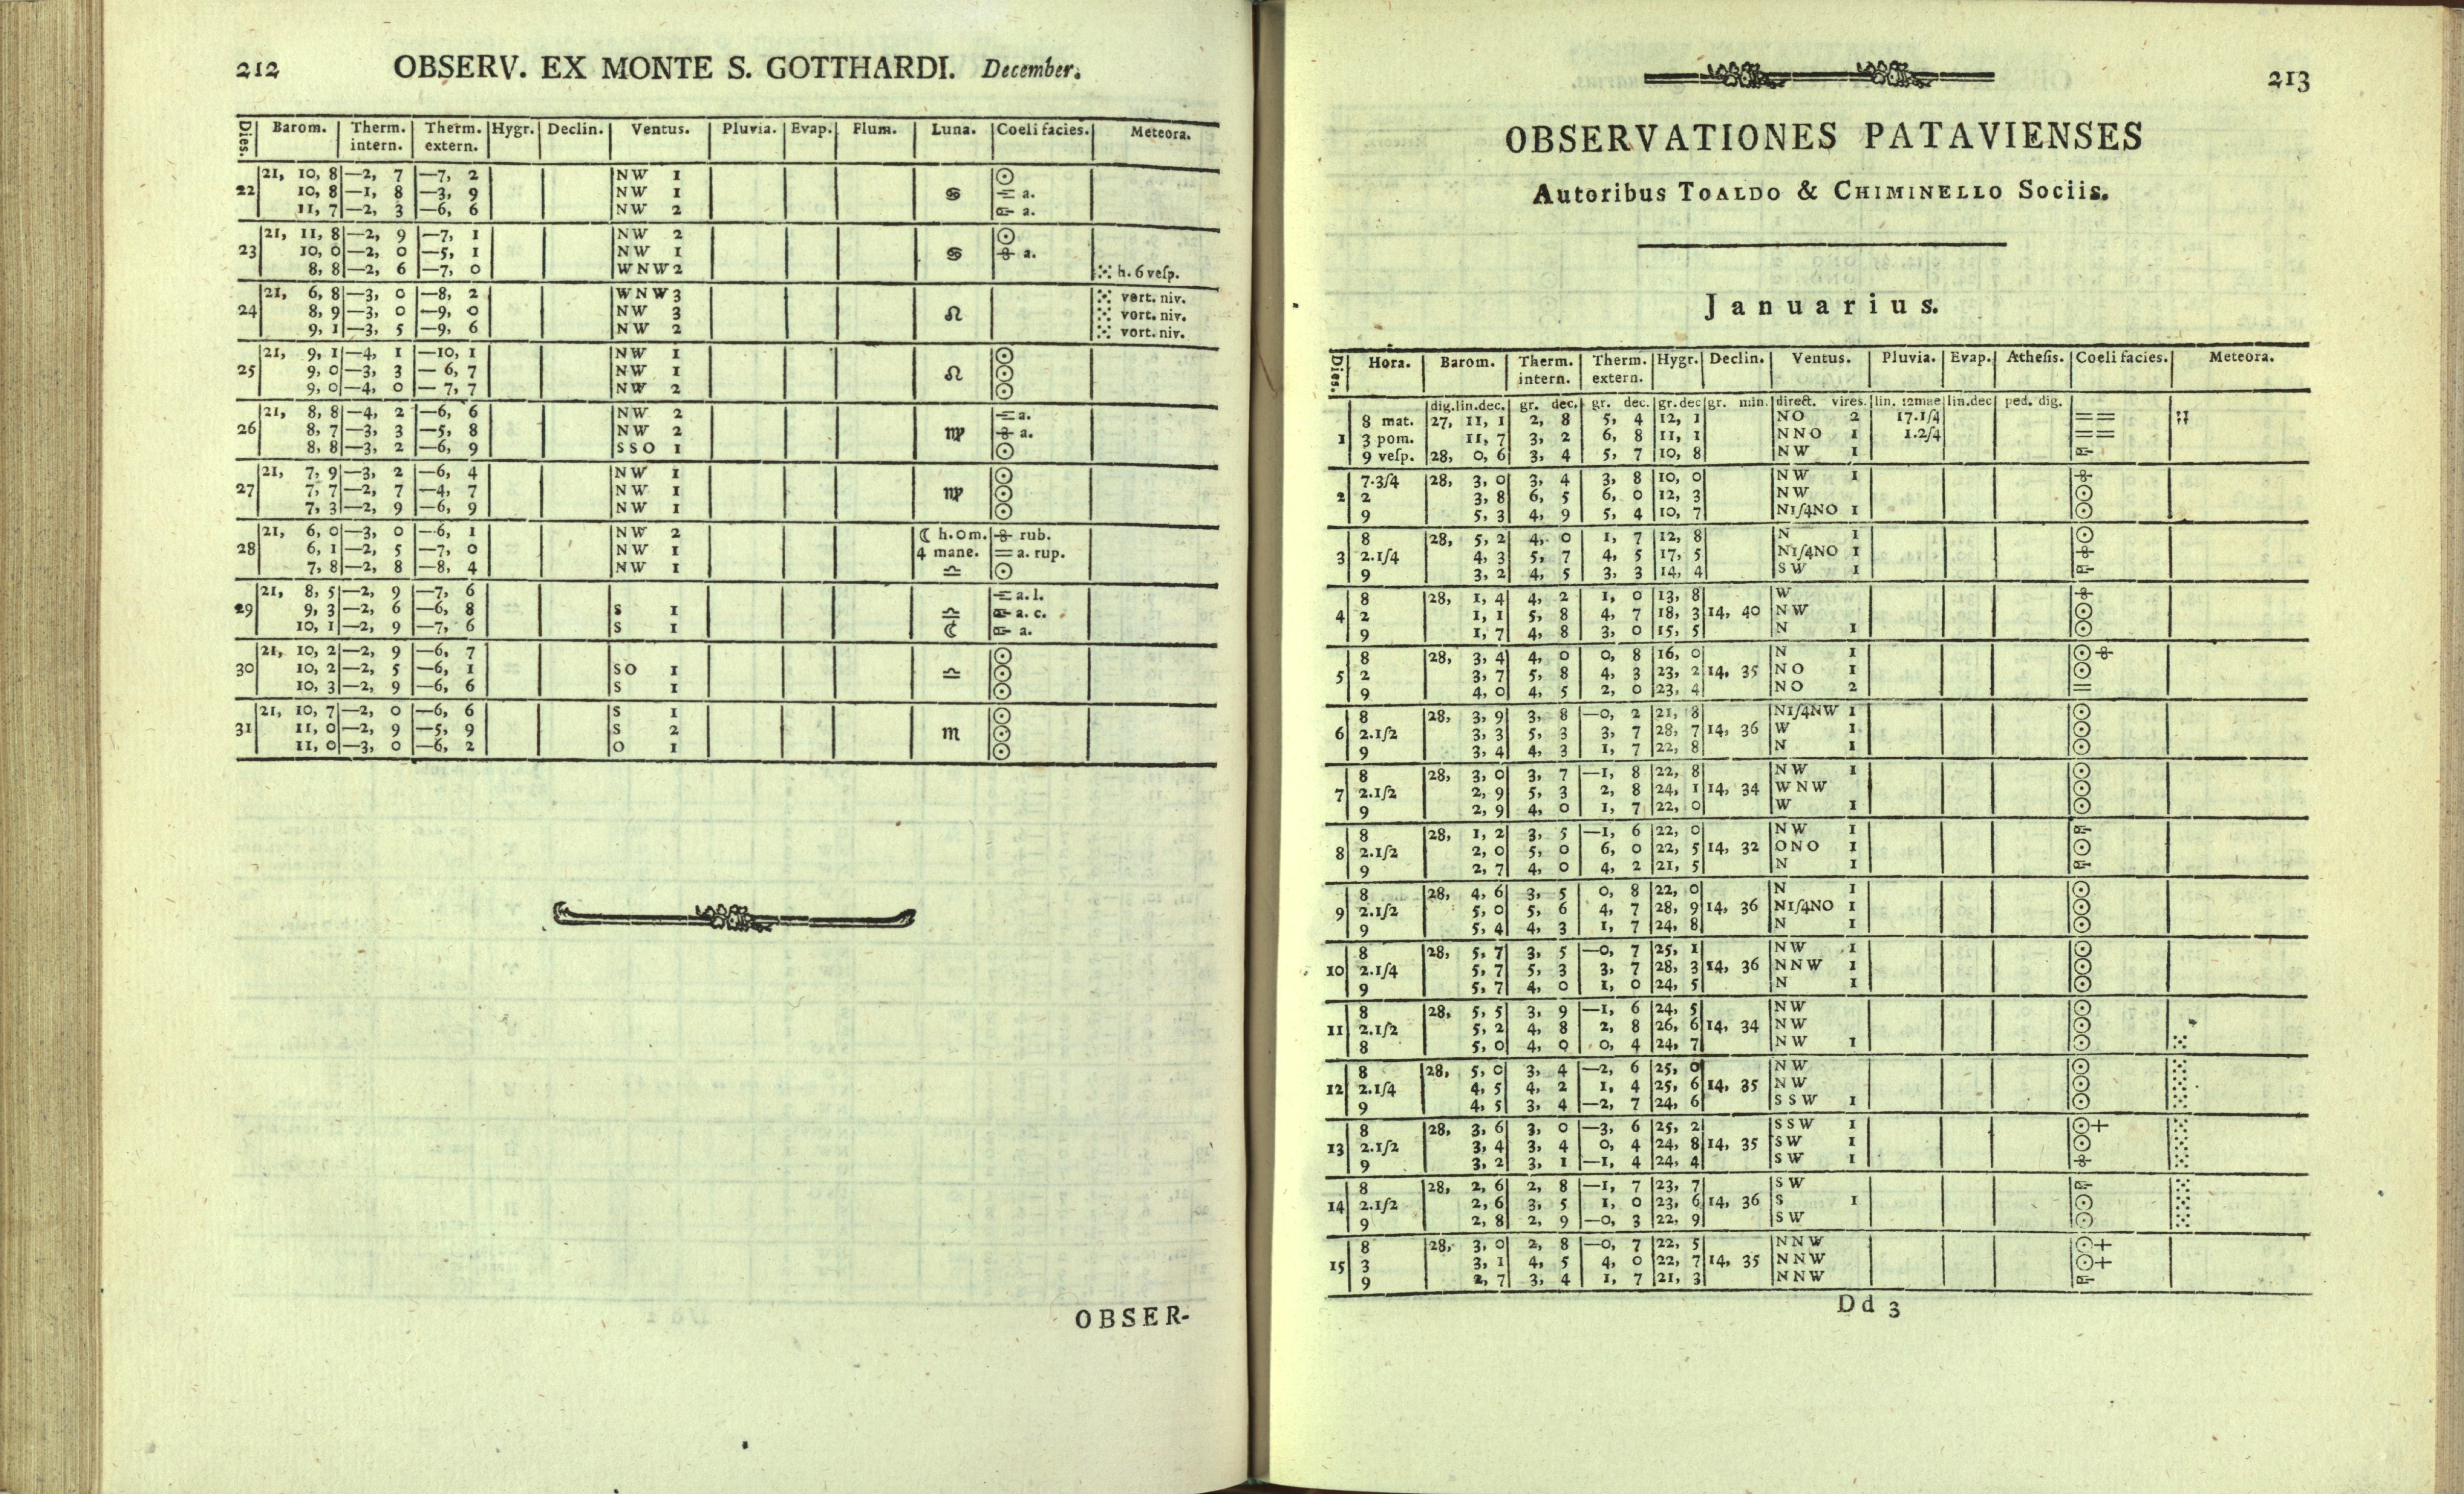 212 OBSERV. EX MONTE S. GOTTHARDI. December.
Dies. Barom. Therm. intern. Therm. extern. Hygr. Declin. Ventus. Pluvia. Evap. Flum. Luna. Coeli facies. Meteora.
21, 10, 8 —2, 7 —7, 2 NW 1 ⊙
22 10, 8 —1, 8 —3, 9 NW 1 ♋ a.
11, 7 —2, 3 —6, 6 NW 2 a.
21, 11, 8 —2, 9 —7, 1 NW 2 ⊙
23 10, 0 —2, 0 —5, 1 NW 1 ♋ a.
8, 8 —2, 6 —7, 0 WNW 2 h. 6 veſp.
21, 6, 8 —3, 0 —8, 2 WNW 3 vort. niv.
24 8, 9 —3, 0 —9, 0 NW 3 ♌ vort. niv.
9, 1 —3, 5 —9, 6 NW 2 vort. niv.
21, 9, 1 —4, 1 —10, 1 NW 1 ⊙
25 9, 0 —3, 3 —6, 7 NW 1 ♌ ⊙
9, 0 —4, 0 —7, 7 NW 2 ⊙
21, 8, 8 —4, 2 —6, 6 NW 2 a.
26 8, 7 —3, 3 —5, 8 NW 2 ♍ a.
8, 8 —3, 2 —6, 9 SSO 1 ⊙
21, 7, 9 —3, 2 —6, 4 NW 1 ⊙
27 7, 7 —2, 7 —4, 7 NW 1 ♍ ⊙
7, 3 —2, 9 —6, 9 NW 1 ⊙
21, 6, 0 —3, 0 —6, 1 NW 2 ☾ h. 0 m. rub.
28 6, 1 —2, 5 —7, 0 NW 1 4 mane. = a. rup.
7, 8 —2, 8 —8, 4 NW 1 ♎ ⊙
21, 8, 5 —2, 9 —7, 6 a. l.
29 9, 3 —2, 6 —6, 8 S 1 ♎ a. c.
10, 1 —2, 9 —7, 6 S 1 ☾ a.
21, 10, 2 —2, 9 —6, 7 ⊙
30 10, 2 —2, 5 —6, 1 SO 1 ♎ ⊙
10, 3 —2, 9 —6, 6 S 1 ⊙
21, 10, 7 —2, 0 —6, 6 S 1 ⊙
31 11, 0 —2, 9 —5, 9 S 2 ♏ ⊙
11, 0 —3, 0 —6, 2 O 1 ⊙
OBSER-
213
OBSERVATIONES PATAVIENSES
Autoribus TOALDO & CHIMINELLO Sociis.
Januarius.
Dies. Hora. Barom. Therm. intern. Therm. extern. Hygr. Declin. Ventus. Pluvia. Evap. Atheſis. Coeli facies. Meteora.
dig. lin. dec. gr. dec. gr. dec. gr. dec gr. min. direct. vires. lin. 12mae lin. dec ped. dig.
8 mat. 27, 11, 1 2, 8 5, 4 12, 1 NO 2 17.1/4 = =
1 3 pom. 11, 7 3, 2 6, 8 11, 1 NNO 1 1.2/4 = =
9 veſp. 28, 0, 6 3, 4 5, 7 10, 8 NW 1
7.3/4 28, 3, 0 3, 4 3, 8 10, 0 NW 1
2 2 3, 8 6, 5 6, 0 12, 3 NW ⊙
9 5, 3 4, 9 5, 4 10, 7 N1/4NO 1 ⊙
8 28, 5, 2 4, 0 1, 7 12, 8 N 1 ⊙
3 2.1/4 4, 3 5, 7 4, 5 17, 5 N1/4NO 1
9 3, 2 4, 5 3, 3 14, 4 SW 1
8 28, 1, 4 4, 2 1, 0 13, 8 W
4 2 1, 1 5, 8 4, 7 18, 3 14, 40 NW ⊙
9 1, 7 4, 8 3, 0 15, 5 N 1 ⊙
8 28, 3, 4 4, 0 0, 8 16, 0 N 1 ⊙
5 2 3, 7 5, 8 4, 3 23, 2 14, 35 NO 1 ⊙
9 4, 0 4, 5 2, 0 23, 4 NO 2 =
8 28, 3, 9 3, 8 —0, 2 21, 8 N1/4NW 1 ⊙
6 2.1/2 3, 3 5, 3 3, 7 28, 7 14, 36 W 1 ⊙
9 3, 4 4, 3 1, 7 22, 8 N 1 ⊙
8 28, 3, 0 3, 7 —1, 8 22, 8 NW 1 ⊙
7 2.1/2 2, 9 5, 3 2, 8 24, 1 14, 34 WNW ⊙
9 2, 9 4, 0 1, 7 22, 0 W 1 ⊙
8 28, 1, 2 3, 5 —1, 6 22, 0 NW 1
8 2.1/2 2, 0 5, 0 6, 0 22, 5 14, 32 ONO 1 ⊙
9 2, 7 4, 0 4, 2 21, 5 N 1
8 28, 4, 6 3, 5 0, 8 22, 0 N 1 ⊙
9 2.1/2 5, 0 5, 6 4, 7 28, 9 14, 36 N1/4NO 1 ⊙
9 5, 4 4, 3 1, 7 24, 8 N 1 ⊙
8 28, 5, 7 3, 5 —0, 7 25, 1 NW 1 ⊙
10 2.1/4 5, 7 5, 3 3, 7 28, 3 14, 36 NNW 1 ⊙
9 5, 7 4, 0 1, 0 24, 5 N 1 ⊙
8 28, 5, 5 3, 9 —1, 6 24, 5 NW ⊙
11 2.1/2 5, 2 4, 8 2, 8 26, 6 14, 34 NW ⊙
8 5, 0 4, 0 0, 4 24, 7 NW 1 ⊙
8 28, 5, 0 3, 4 —2, 6 25, 0 NW ⊙
12 2.1/4 4, 5 4, 2 1, 4 25, 6 14, 35 NW ⊙
9 4, 5 3, 4 —2, 7 24, 6 SSW 1 ⊙
8 28, 3, 6 3, 0 —3, 6 25, 2 SSW 1 ⊙+
13 2.1/2 3, 4 3, 4 0, 4 24, 8 14, 35 SW 1 ⊙
9 3, 2 3, 1 —1, 4 24, 4 SW 1
8 28, 2, 6 2, 8 —1, 7 23, 7 SW
14 2.1/2 2, 6 3, 5 1, 0 23, 6 14, 36 S 1 ⊙
9 2, 8 2, 9 —0, 3 22, 9 SW ⊙
8 28, 3, 0 2, 8 —0, 7 22, 5 NNW ⊙+
15 3 3, 1 4, 5 4, 0 22, 7 14, 35 NNW ⊙+
9 2, 7 3, 4 1, 7 21, 3 NNW
Dd 3